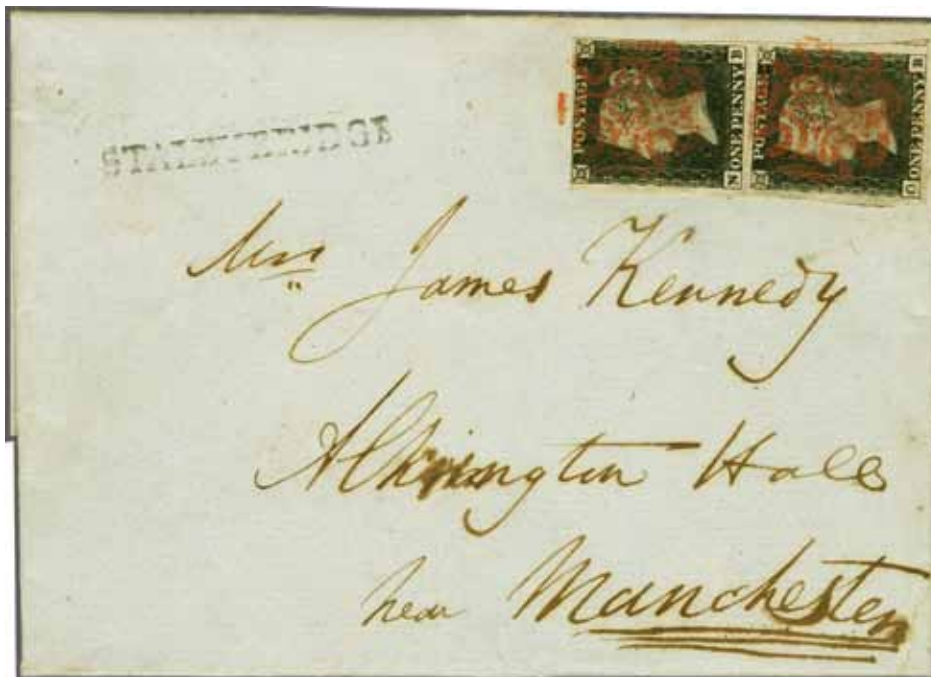 STALEYBRIDGE
POSTAGE
ONE PENNY
N B
POSTAGE
ONE PENNY
C B
Mrs James Kennedy
Alkrington Hall
near Manchester